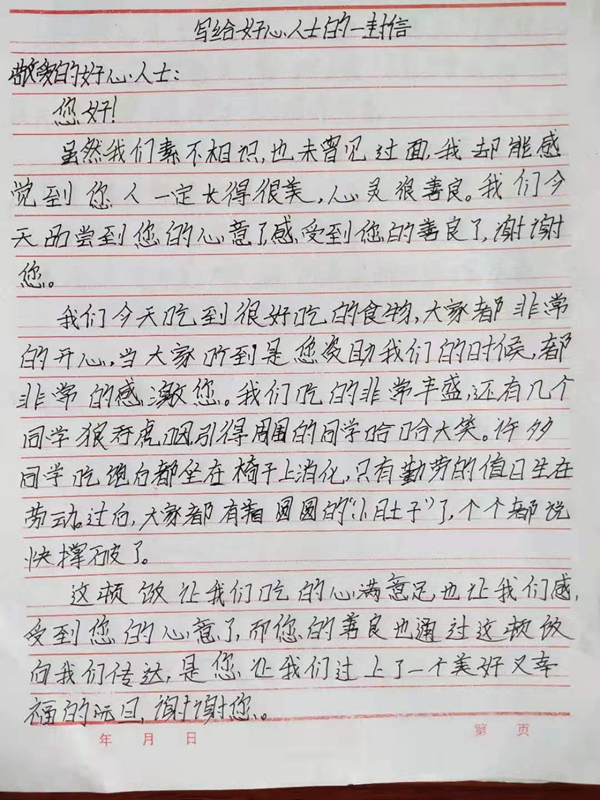 写给好心人士的一封信
敬爱的好心人士：
您好！
虽然我们素不相识，也未曾见过面，我却能感
觉到您人一定长得很美，心灵很善良。我们今
天品尝到您的心意了感受到您的善良了，谢谢
您。
我们今天吃到很好吃的食物，大家都非常
的开心，当大家听到是您资助我们的时候，都
非常的感激您。我们吃的非常丰盛，还有几个
同学狼吞虎咽引得周围的同学哈哈大笑。许多
同学吃饱后都坐在椅子上消化，只有勤劳的值日生在
劳动。过后，大家都有着圆圆的“小肚子”了，个个都说
快撑破了。
这顿饭让我们吃的心满意足，也让我们感
受到您的心意了，而您的善良也通过这顿饭
向我们传达，是您让我们过上了一个美好又幸
福的元旦，谢谢您。
年 月 日 第 页